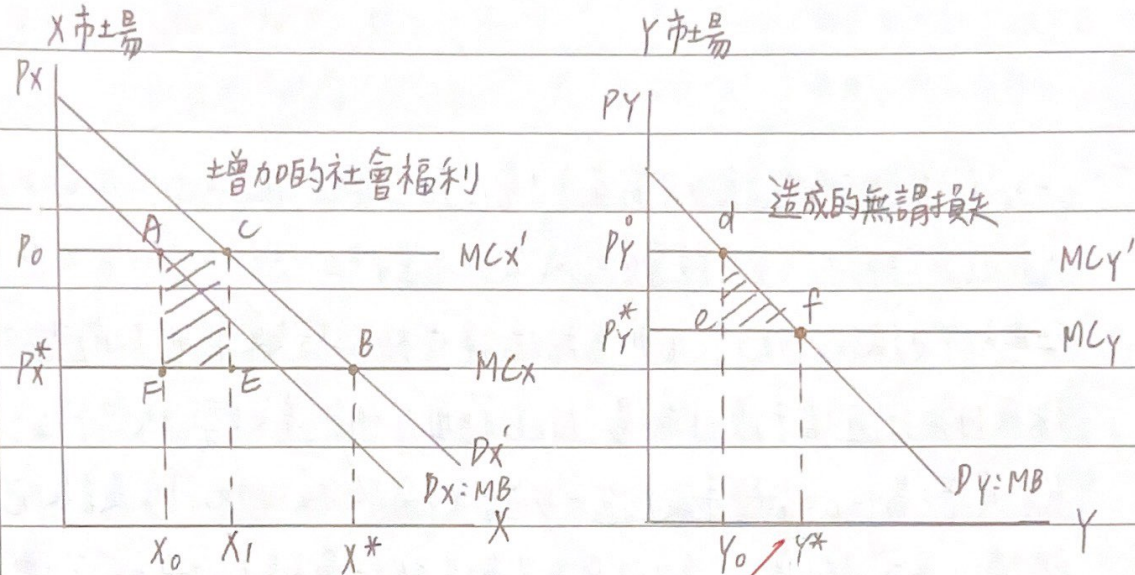 X市場
Px
增加的社會福利
A
C
P₀
MCx'
Px*
F
E
B
MCx
Dx'
Dx:MB
X₀
X₁
X*
X
Y市場
PY
造成的無謂損失
d
PY⁰
MCY'
PY*
e
f
MCY
DY:MB
Y₀
Y*
Y